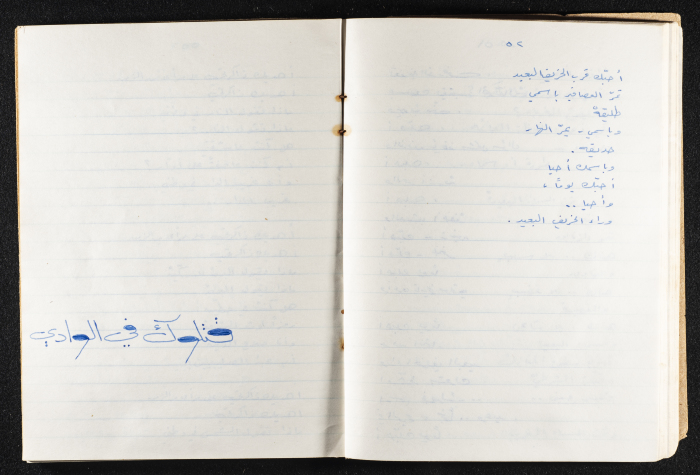 ٥٢
أحبّك قرب الخريف البعيد
تمرّ العصافير باسمي
طليقهْ
وباسمي يمرّ النهار
حديقهْ .
وباسمك أحيا
أحبّك يومًا ،
وأحيا ..
وراء الخريف البعيد .
قتلوك في الوادي